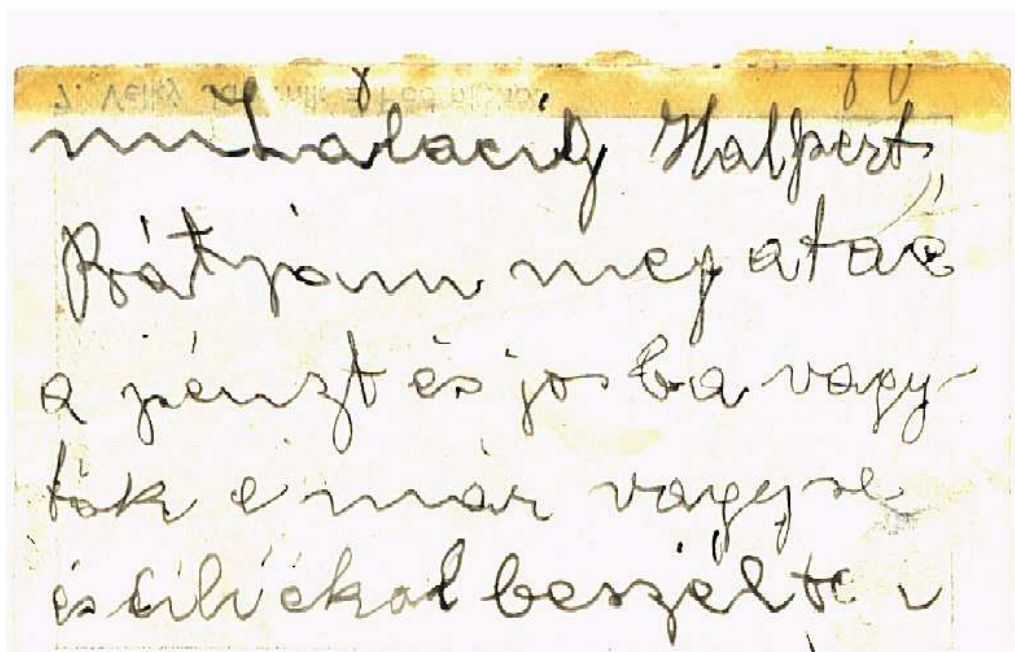 Halpert
Bátyám meg atae
a pénzt és jos ba vagy
tok e már vagy se
és cilvékal beszélt e